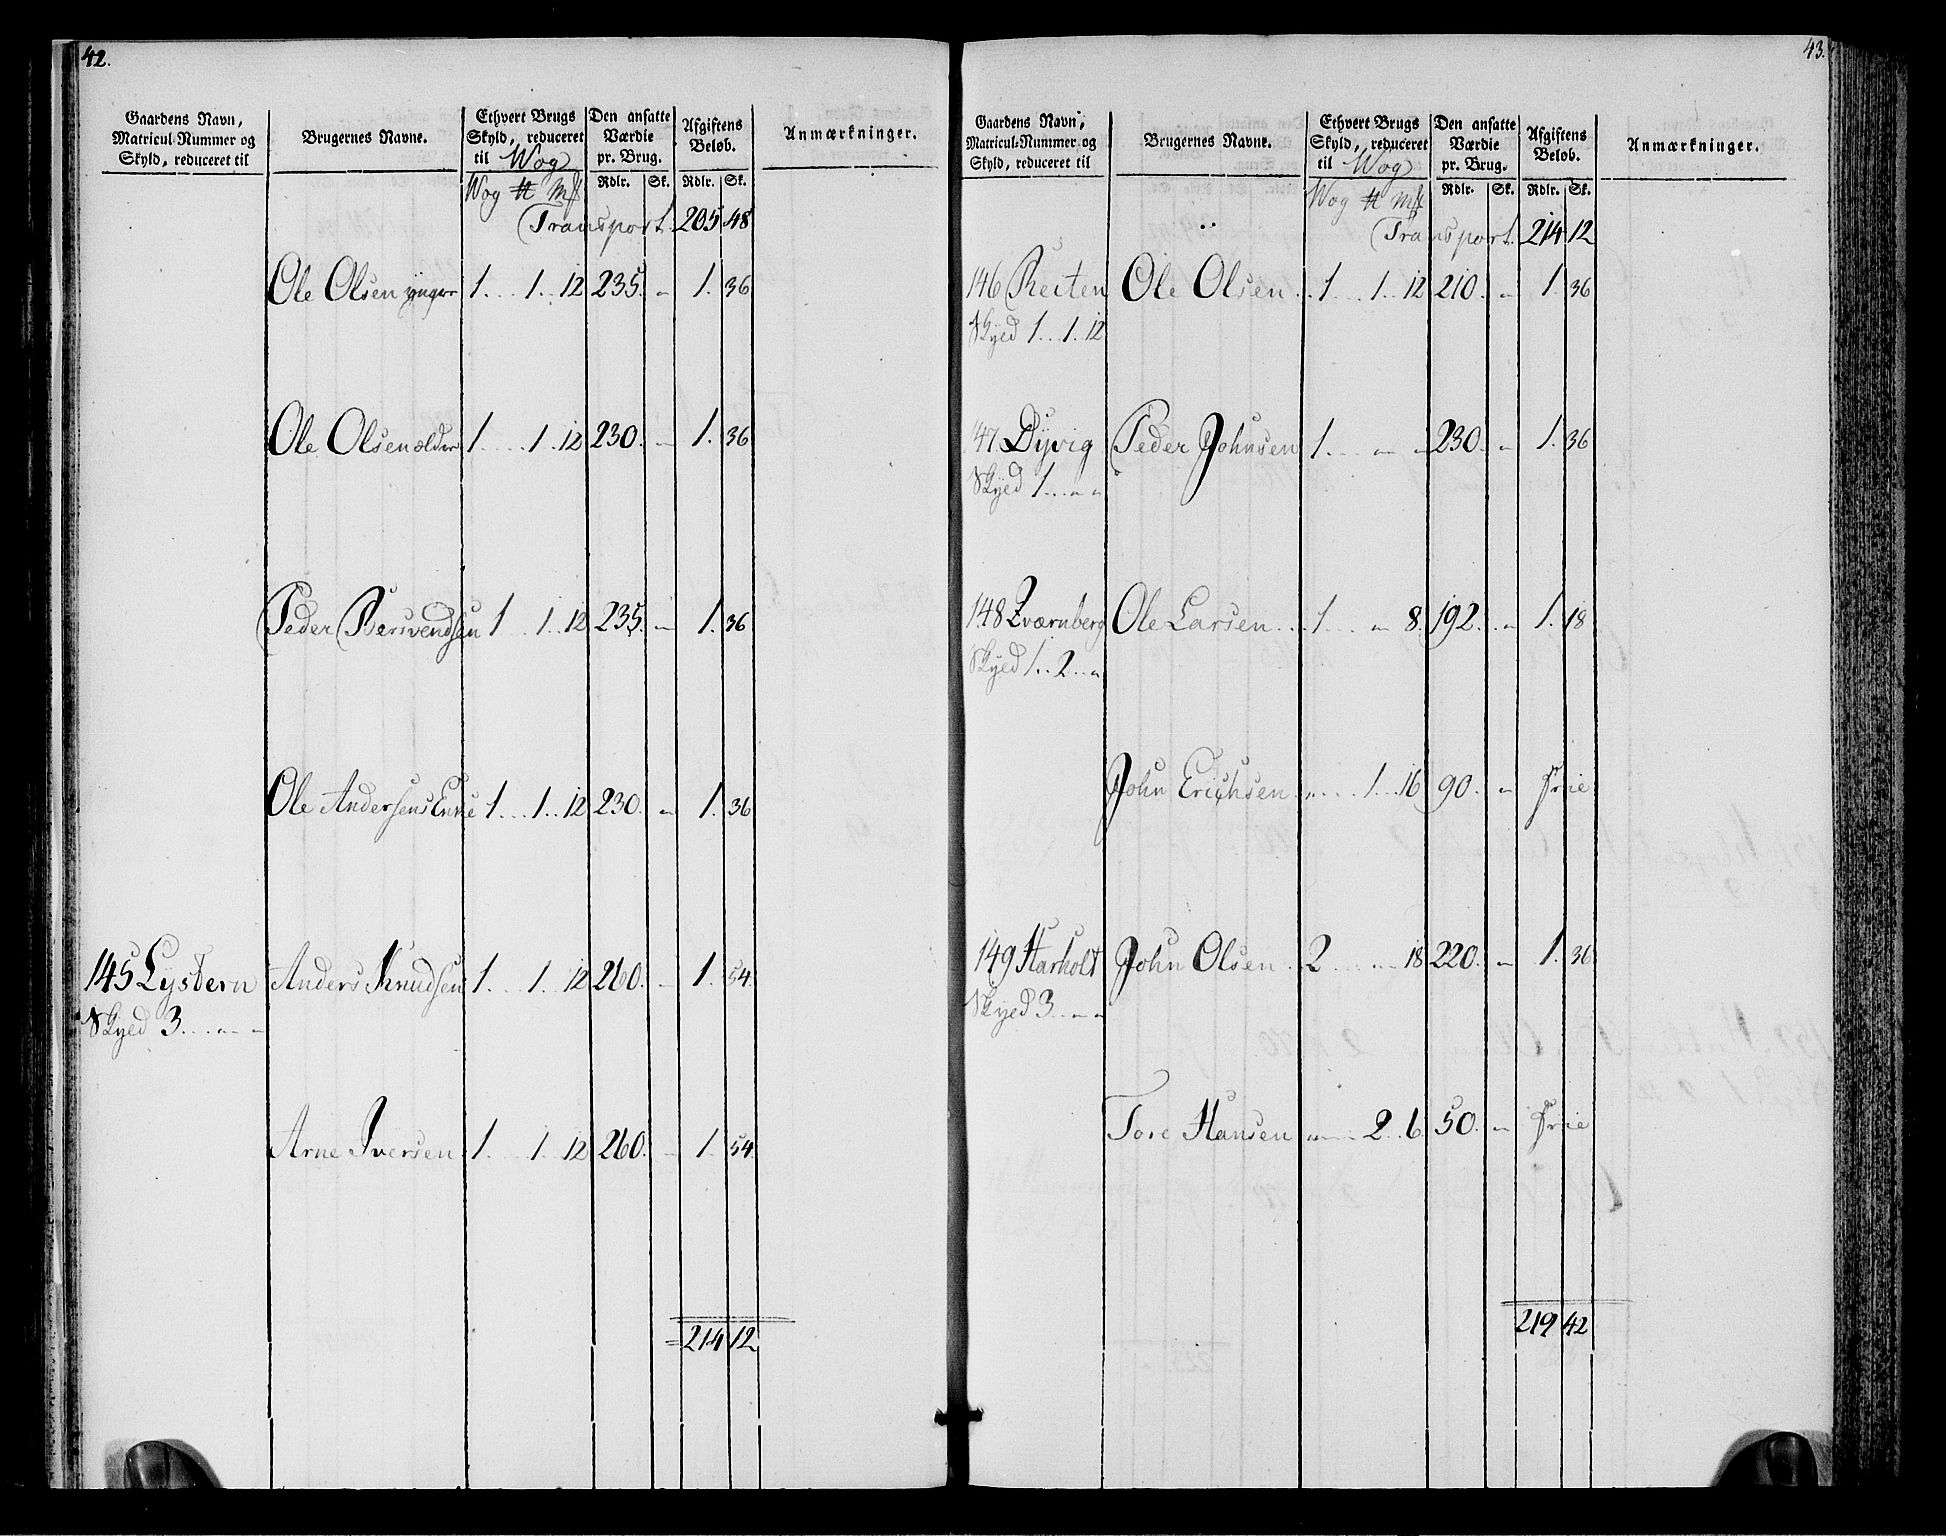 42.
Gaardens Navn, Matricul-Nummer og Skyld, reduceret til | Brugernes Navne. | Ethvert Brugs Skyld, reduceret til Wog | Den ansatte Værdie pr. Brug. | Afgiftens Beløb. | Anmærkninger.
Wog ℔ Mk | Rdlr. | Sk. | Rdlr. | Sk.
Transport. 205 48
Ole Olsen yngre 1 . . . 1 . . 12 235. " 1. 36
Ole Olsen ælder 1 . . . 1 . . 12 230. " 1. 36
Peder Bersvendsen 1 . . 1 . . 12 235. " 1. 36
Ole Andersens Enke 1 . . . 1 . . 12 230. " 1. 36
145 Lystern Anders Knudsen 1 . . . 1 . . 12 260. " 1. 54.
Skyed 3 . . . " "
Arne Iversen 1 . . . 1 . . 12 260. " 1. 54.
214 12
43.
Gaardens Navn, Matricul-Nummer og Skyld, reduceret til | Brugernes Navne. | Ethvert Brugs Skyld, reduceret til Wog | Den ansatte Værdie pr. Brug. | Afgiftens Beløb. | Anmærkninger.
Wog ℔ Mk | Rdlr. | Sk. | Rdlr. | Sk.
Transport. 214 12
146 Reiten Ole Olsen . . 1 . . . 1 . . 12 210. " 1. 36
Skyed 1 . . 1. 12
147. Dyvig Peder Johnsen 1 . . . " " 230. " 1. 36
Skyed 1 . . . " "
148 Zværnberg Ole Larsen . . 1 . . . " 8. 192. " 1. 18
Skyed 1 . . 2 . . "
John Erichsen " . . . 1 . . 16 90. " Frie
149 Harholt John Olsen 2 . . . " 18 220. " 1. 36
Skyed 3 . . " "
Tore Hansen " . . 2 . . 6. 50. " Frie
219 42